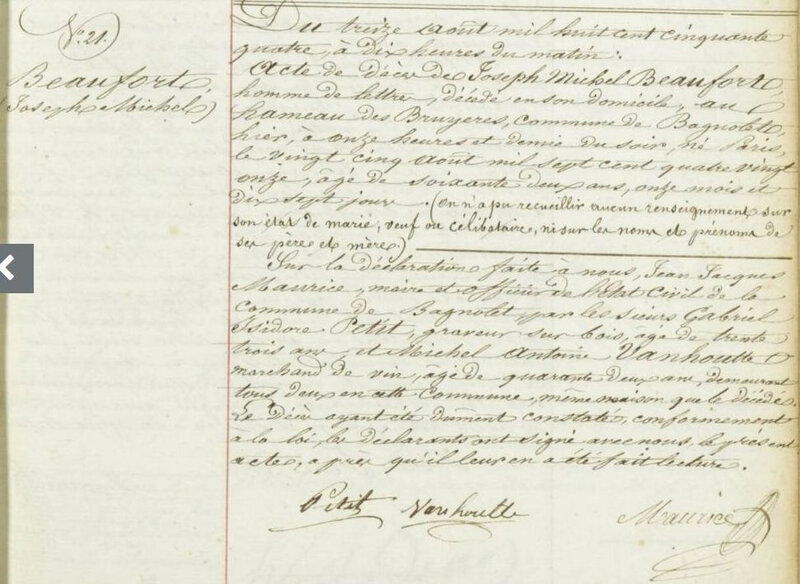 N.° 21.
Beaufort,
(Joseph Michel)
Du treize août mil huit cent cinquante
quatre, à dix heures du matin :
Acte de décès de Joseph Michel Beaufort,
homme de lettre, décédé en son domicile, au
hameau des Bruyeres, commune de Bagnolet,
hier, à onze heures et demie du soir, né Paris,
le vingt cinq août mil sept cent quatre vingt
onze, âgé de soixante deux ans, onze mois et
dix sept jours. (On n'a pu recueillir aucun renseignement sur
son état de marié, veuf ou célibataire, ni sur les noms et prénoms de
ses père et mère.)
Sur la déclaration faite à nous, Jean Jacques
Maurice, maire et officier de l'Etat Civil de la
Commune de Bagnolet, par les sieurs Gabriel
Isidore Petit, graveur sur bois, âgé de trente
trois ans, et Michel Antoine Vanhoutte
marchand de vin, âgé de quarante deux ans, demeurant
tous deux en cette Commune, même maison que le décédé.
Le décès ayant été dûment constaté, conformément
à la loi, les déclarants ont signé avec nous le présent
acte, après qu'il leur en a été fait lecture.
Petit Vanhoutte Maurice